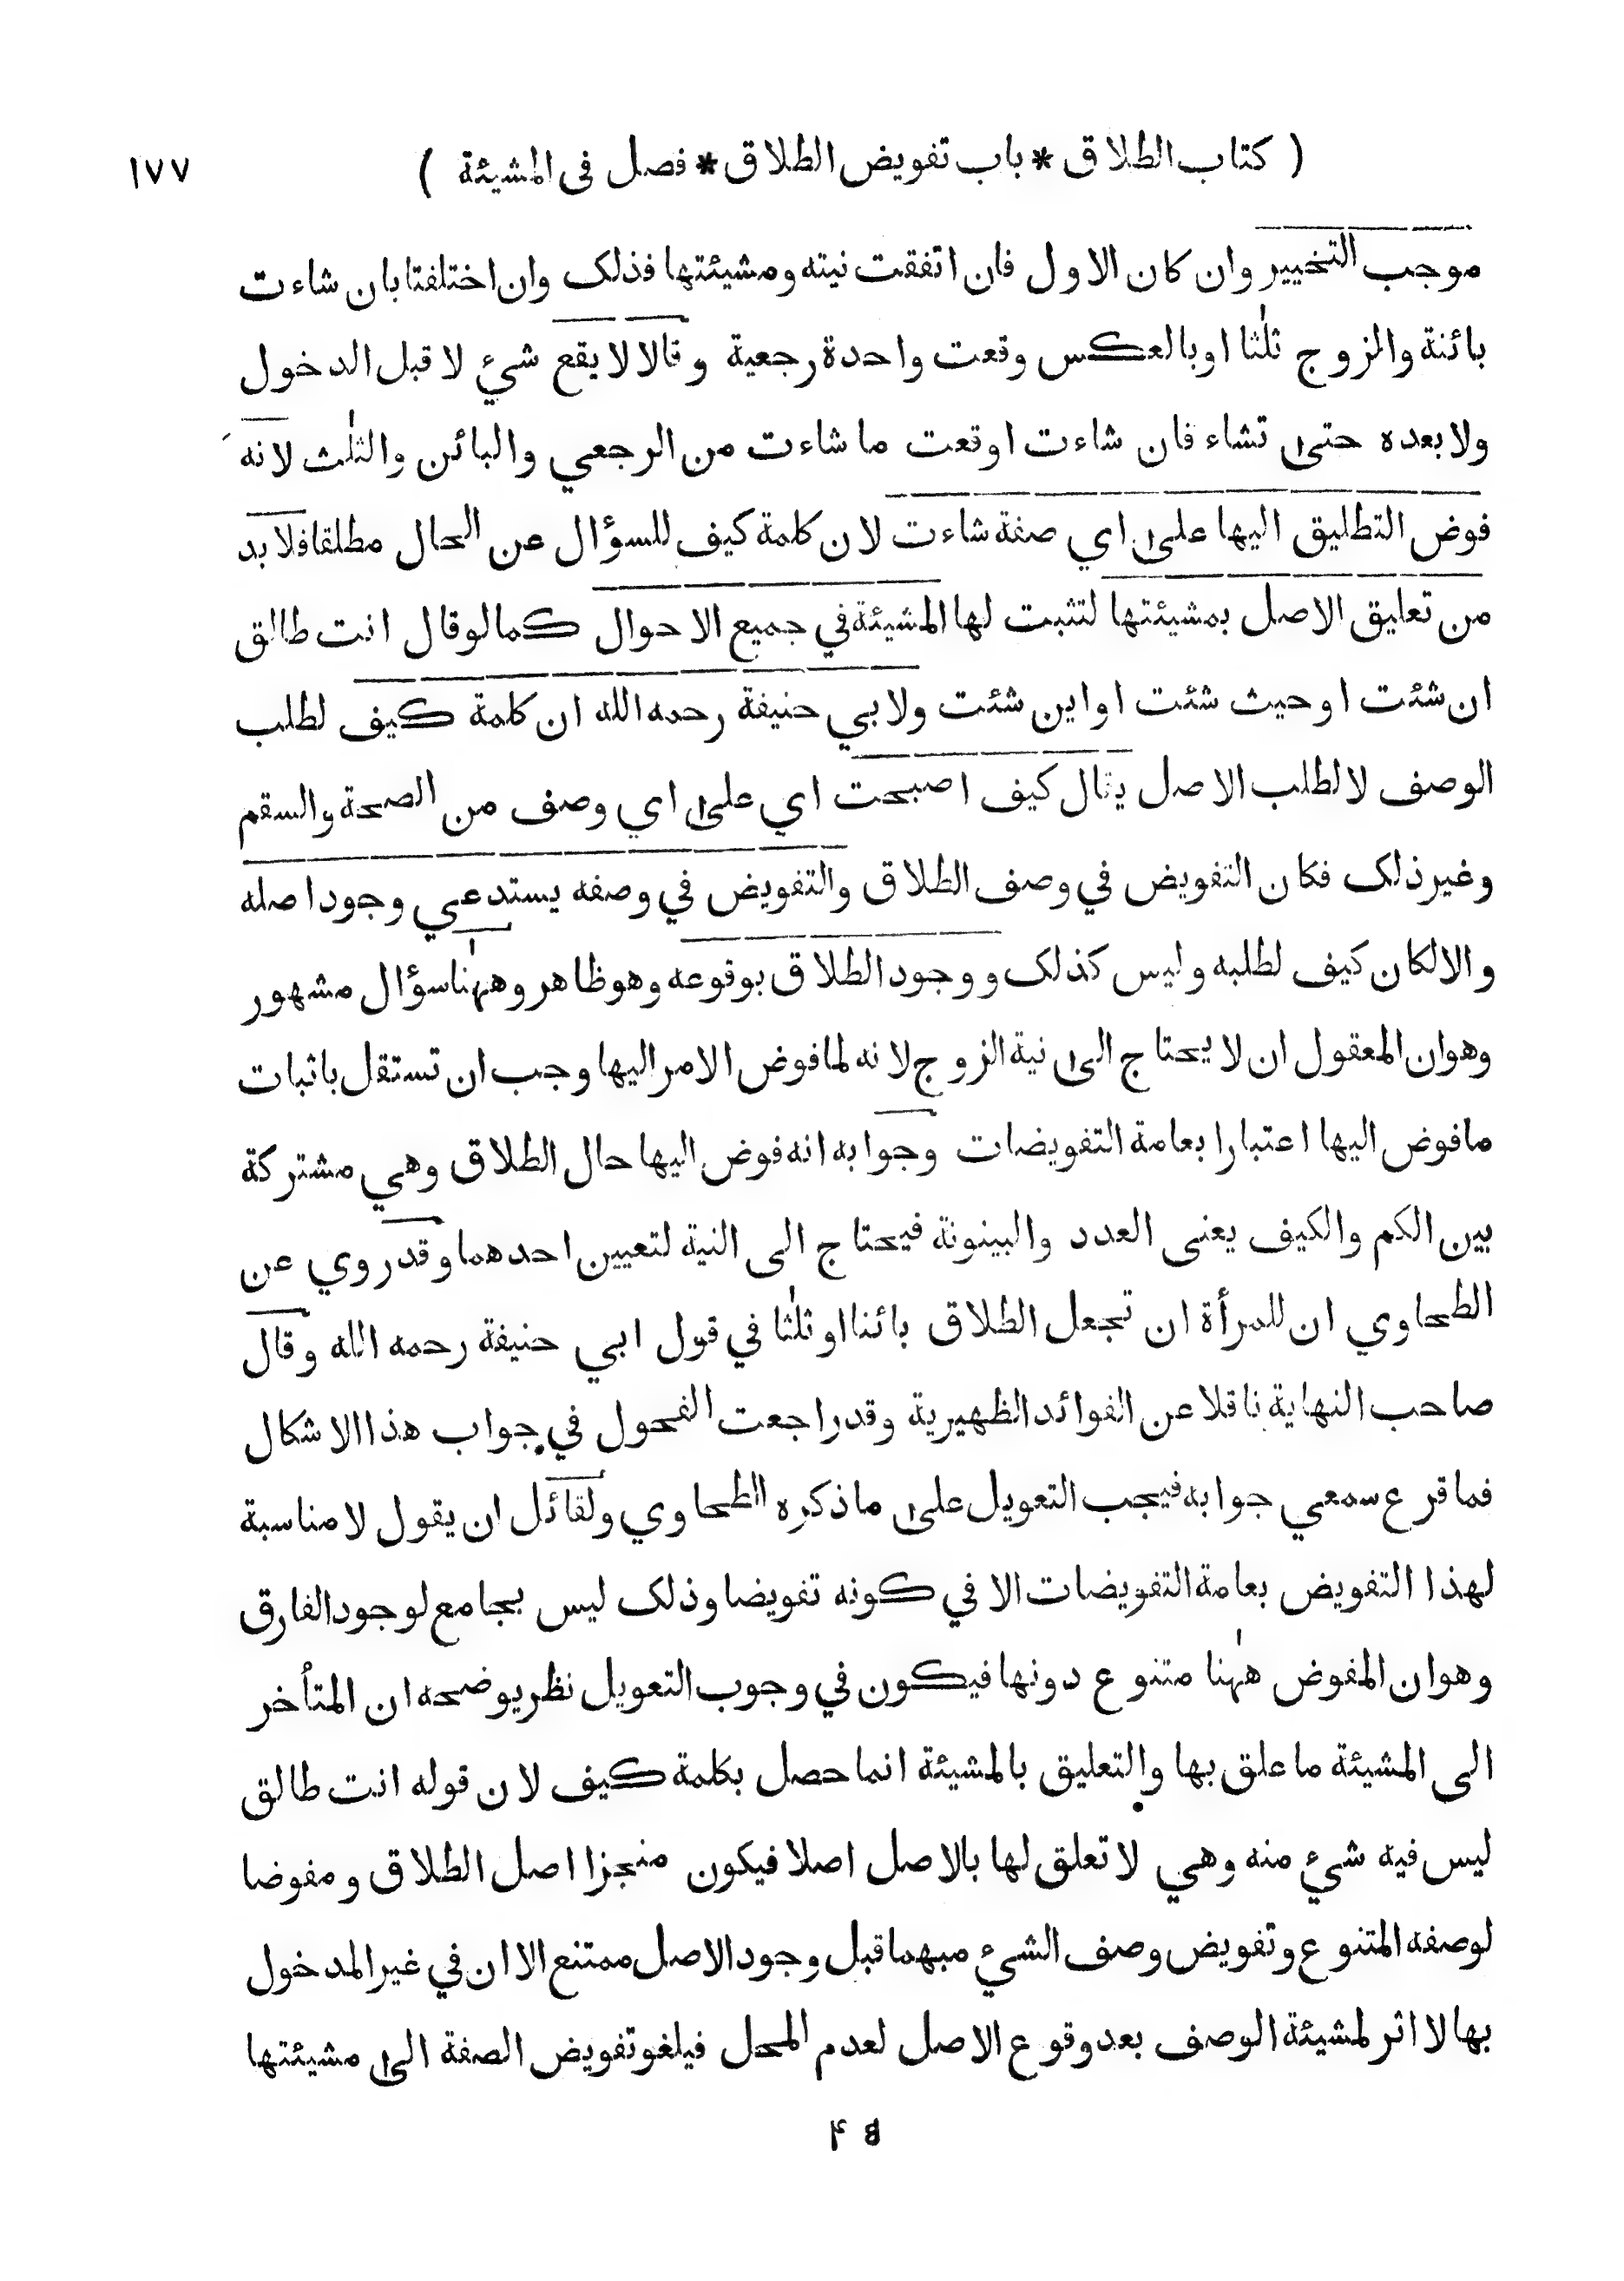 ( كتاب الطلاق * باب تفويض الطلاق * فصل فى المشيئة ) ١٧٧
موجب التخيير وان كان الاول فان اتفقت نيته ومشيئتها فذلک وان اختلفتا بان شاءت
بائنة والزوج ثلٰثا او بالعكس وقعت واحدة رجعية وقالا لا يقع شيء لا قبل الدخول
ولا بعده حتىٰ تشاء فان شاءت اوقعت ما شاءت من الرجعي والبائن والثلٰث لانه
فوض التطليق اليها علىٰ اي صفة شاءت لان كلمة كيف للسؤال عن الحال مطلقا فلا بد
من تعليق الاصل بمشيئتها لتثبت لها المشيئة في جميع الاحوال كما لوقال انت طالق
ان شئت او حيث شئت او اين شئت ولابي حنيفة رحمه الله ان كلمة كيف لطلب
الوصف لا لطلب الاصل يقال كيف اصبحت اي علىٰ اي وصف من الصحة والسقم
وغير ذلک فكان التفويض في وصف الطلاق والتفويض في وصفه يستدعي وجود اصله
والا لكان كيف لطلبه وليس كذلک ووجود الطلاق بوقوعه وهو ظاهر وههٰنا سؤال مشهور
وهو ان المعقول ان لا يحتاج الىٰ نية الزوج لانه لما فوض الامر اليها وجب ان تستقل باثبات
ما فوض اليها اعتبارا بعامة التفويضات وجوابه انه فوض اليها حال الطلاق وهي مشتركة
بين الكم والكيف يعنى العدد والبينونة فيحتاج الى النية لتعيين احدهما وقد روي عن
الطحاوي ان للمرأة ان تجعل الطلاق بائنا او ثلٰثا في قول ابي حنيفة رحمه الله وقال
صاحب النهاية ناقلا عن الفوائد الظهيرية وقد راجعت الفحول في جواب هذا الاشكال
فما قرع سمعي جوابه فيجب التعويل علىٰ ما ذكره الطحاوي ولقائل ان يقول لا مناسبة
لهذا التفويض بعامة التفويضات الا في كونه تفويضا وذلک ليس بجامع لوجود الفارق
وهو ان المفوض ههٰنا متنوع دونها فيكون في وجوب التعويل نظر يوضحه ان المتأخر
الى المشيئة ما علق بها والتعليق بالمشيئة انما حصل بكلمة كيف لان قوله انت طالق
ليس فيه شيء منه وهي لا تعلق لها بالاصل اصلا فيكون منجزا اصل الطلاق ومفوضا
لوصفه المتنوع وتفويض وصف الشيء مبهما قبل وجود الاصل ممتنع الا ان في غير المدخول
بها لا اثر لمشيئة الوصف بعد وقوع الاصل لعدم المحل فيلغو تفويض الصفة الىٰ مشيئتها